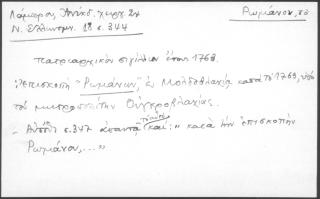 Λάμπρος Ἀνέκδ. χειρ. 24
Ν. Ἑλληνομν. 18 σ. 344
Ρωμάνου, ἐπ
πατριαρχικὸν σιγίλλιον ἔτους 1769.
ἐπισκοπὴ "Ρωμάνου," ἐν Μολδοβλαχίᾳ κατὰ τὸ 1769, ὑπὸ
τὸν μητροπολίτην Οὐγκροβλαχίας.
- Αὐτόθι σ. 347 ἀπαντᾷ τοῦτο καί: "κατὰ τὴν ἐπισκοπὴν
Ρωμάνου,..."